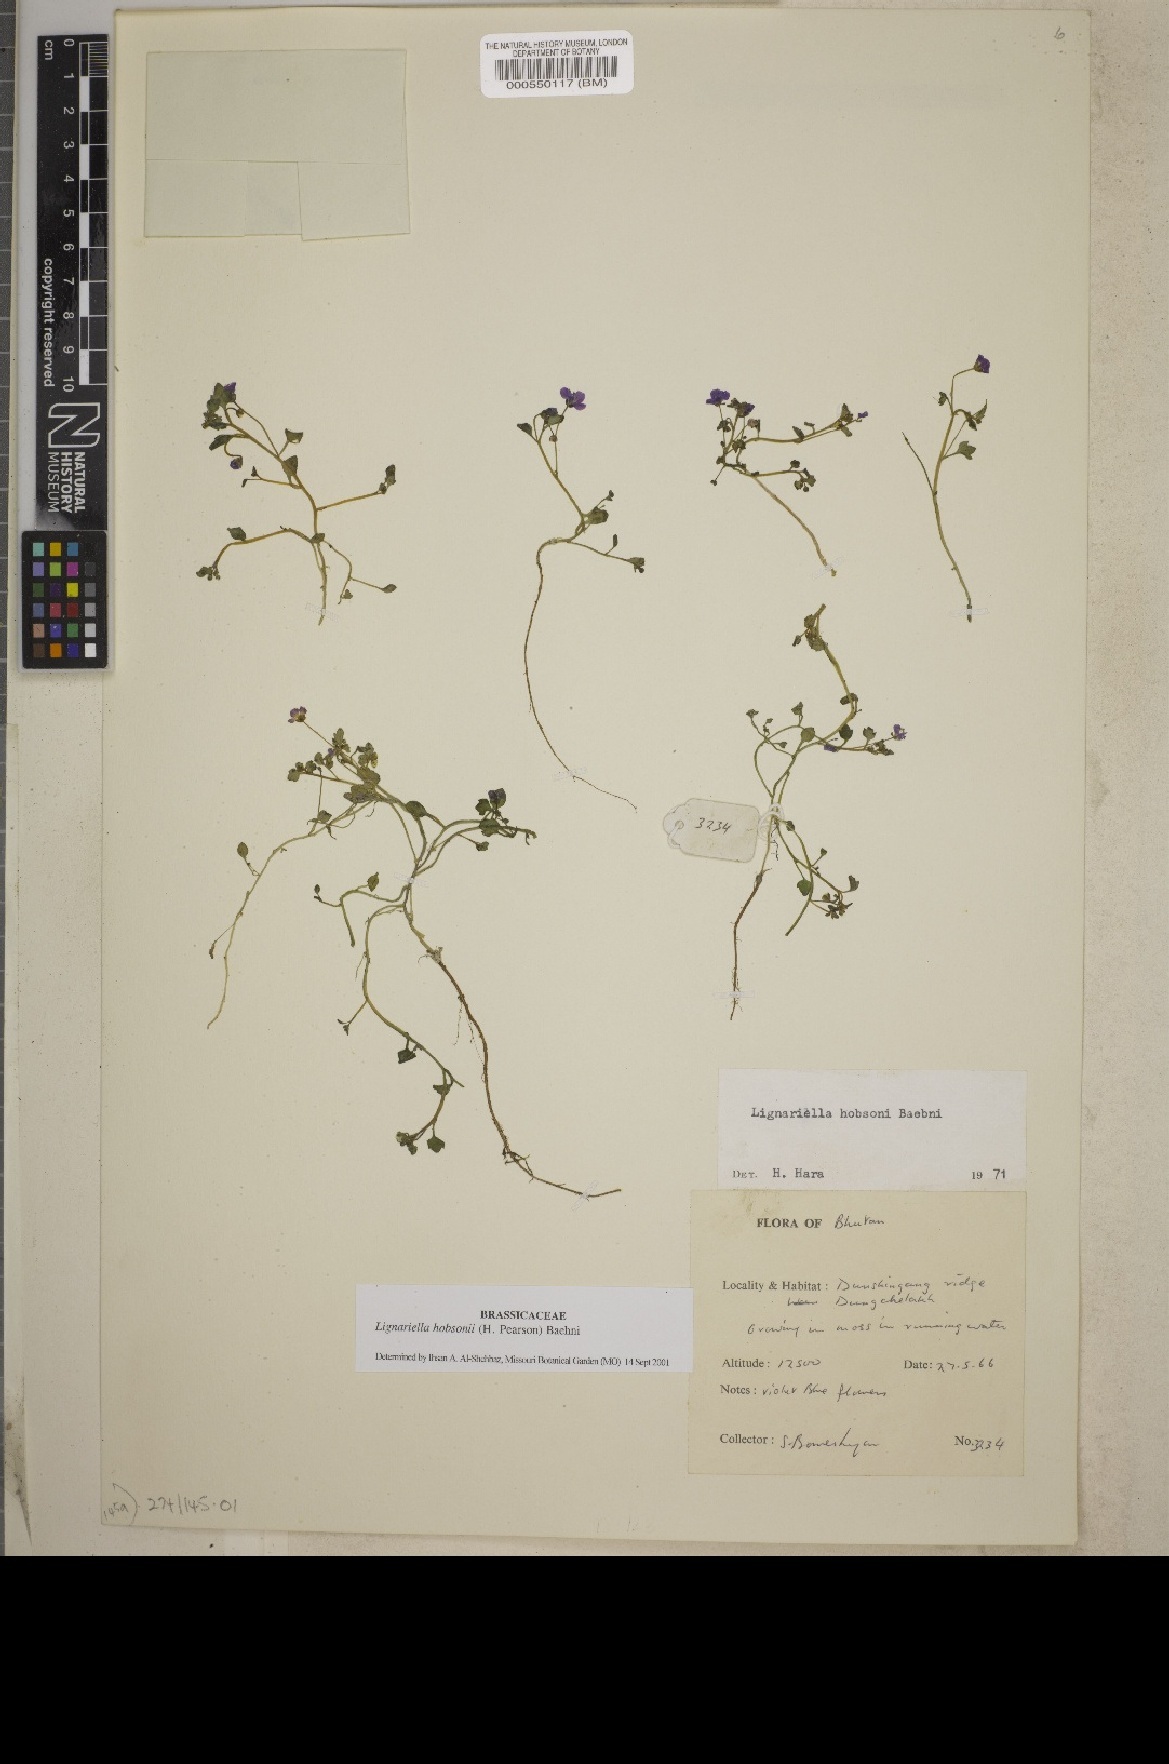 THE NATURAL HISTORY MUSEUM, LONDON
DEPARTMENT OF BOTANY
000550117 (BM)
6
cm
0
1
2
3
4
5
6
7
8
9
10
copyright reserved
NATURAL
HISTORY
MUSEUM
3234
Lignariella hobsoni Baehni
DET. H. Hara 1971
FLORA OF Bhutan
Locality & Habitat: Dunshingang ridge
Growing in moss in running water
Altitude: 12500 Date: 27.5.66
Notes: violet blue flowers
Collector: S. Bowes Lyon No. 3234
BRASSICACEAE
Lignariella hobsonii (H. Pearson) Baehni
Determined by Ihsan A. Al-Shehbaz, Missouri Botanical Garden (MO) 14 Sept 2001
274/145.01